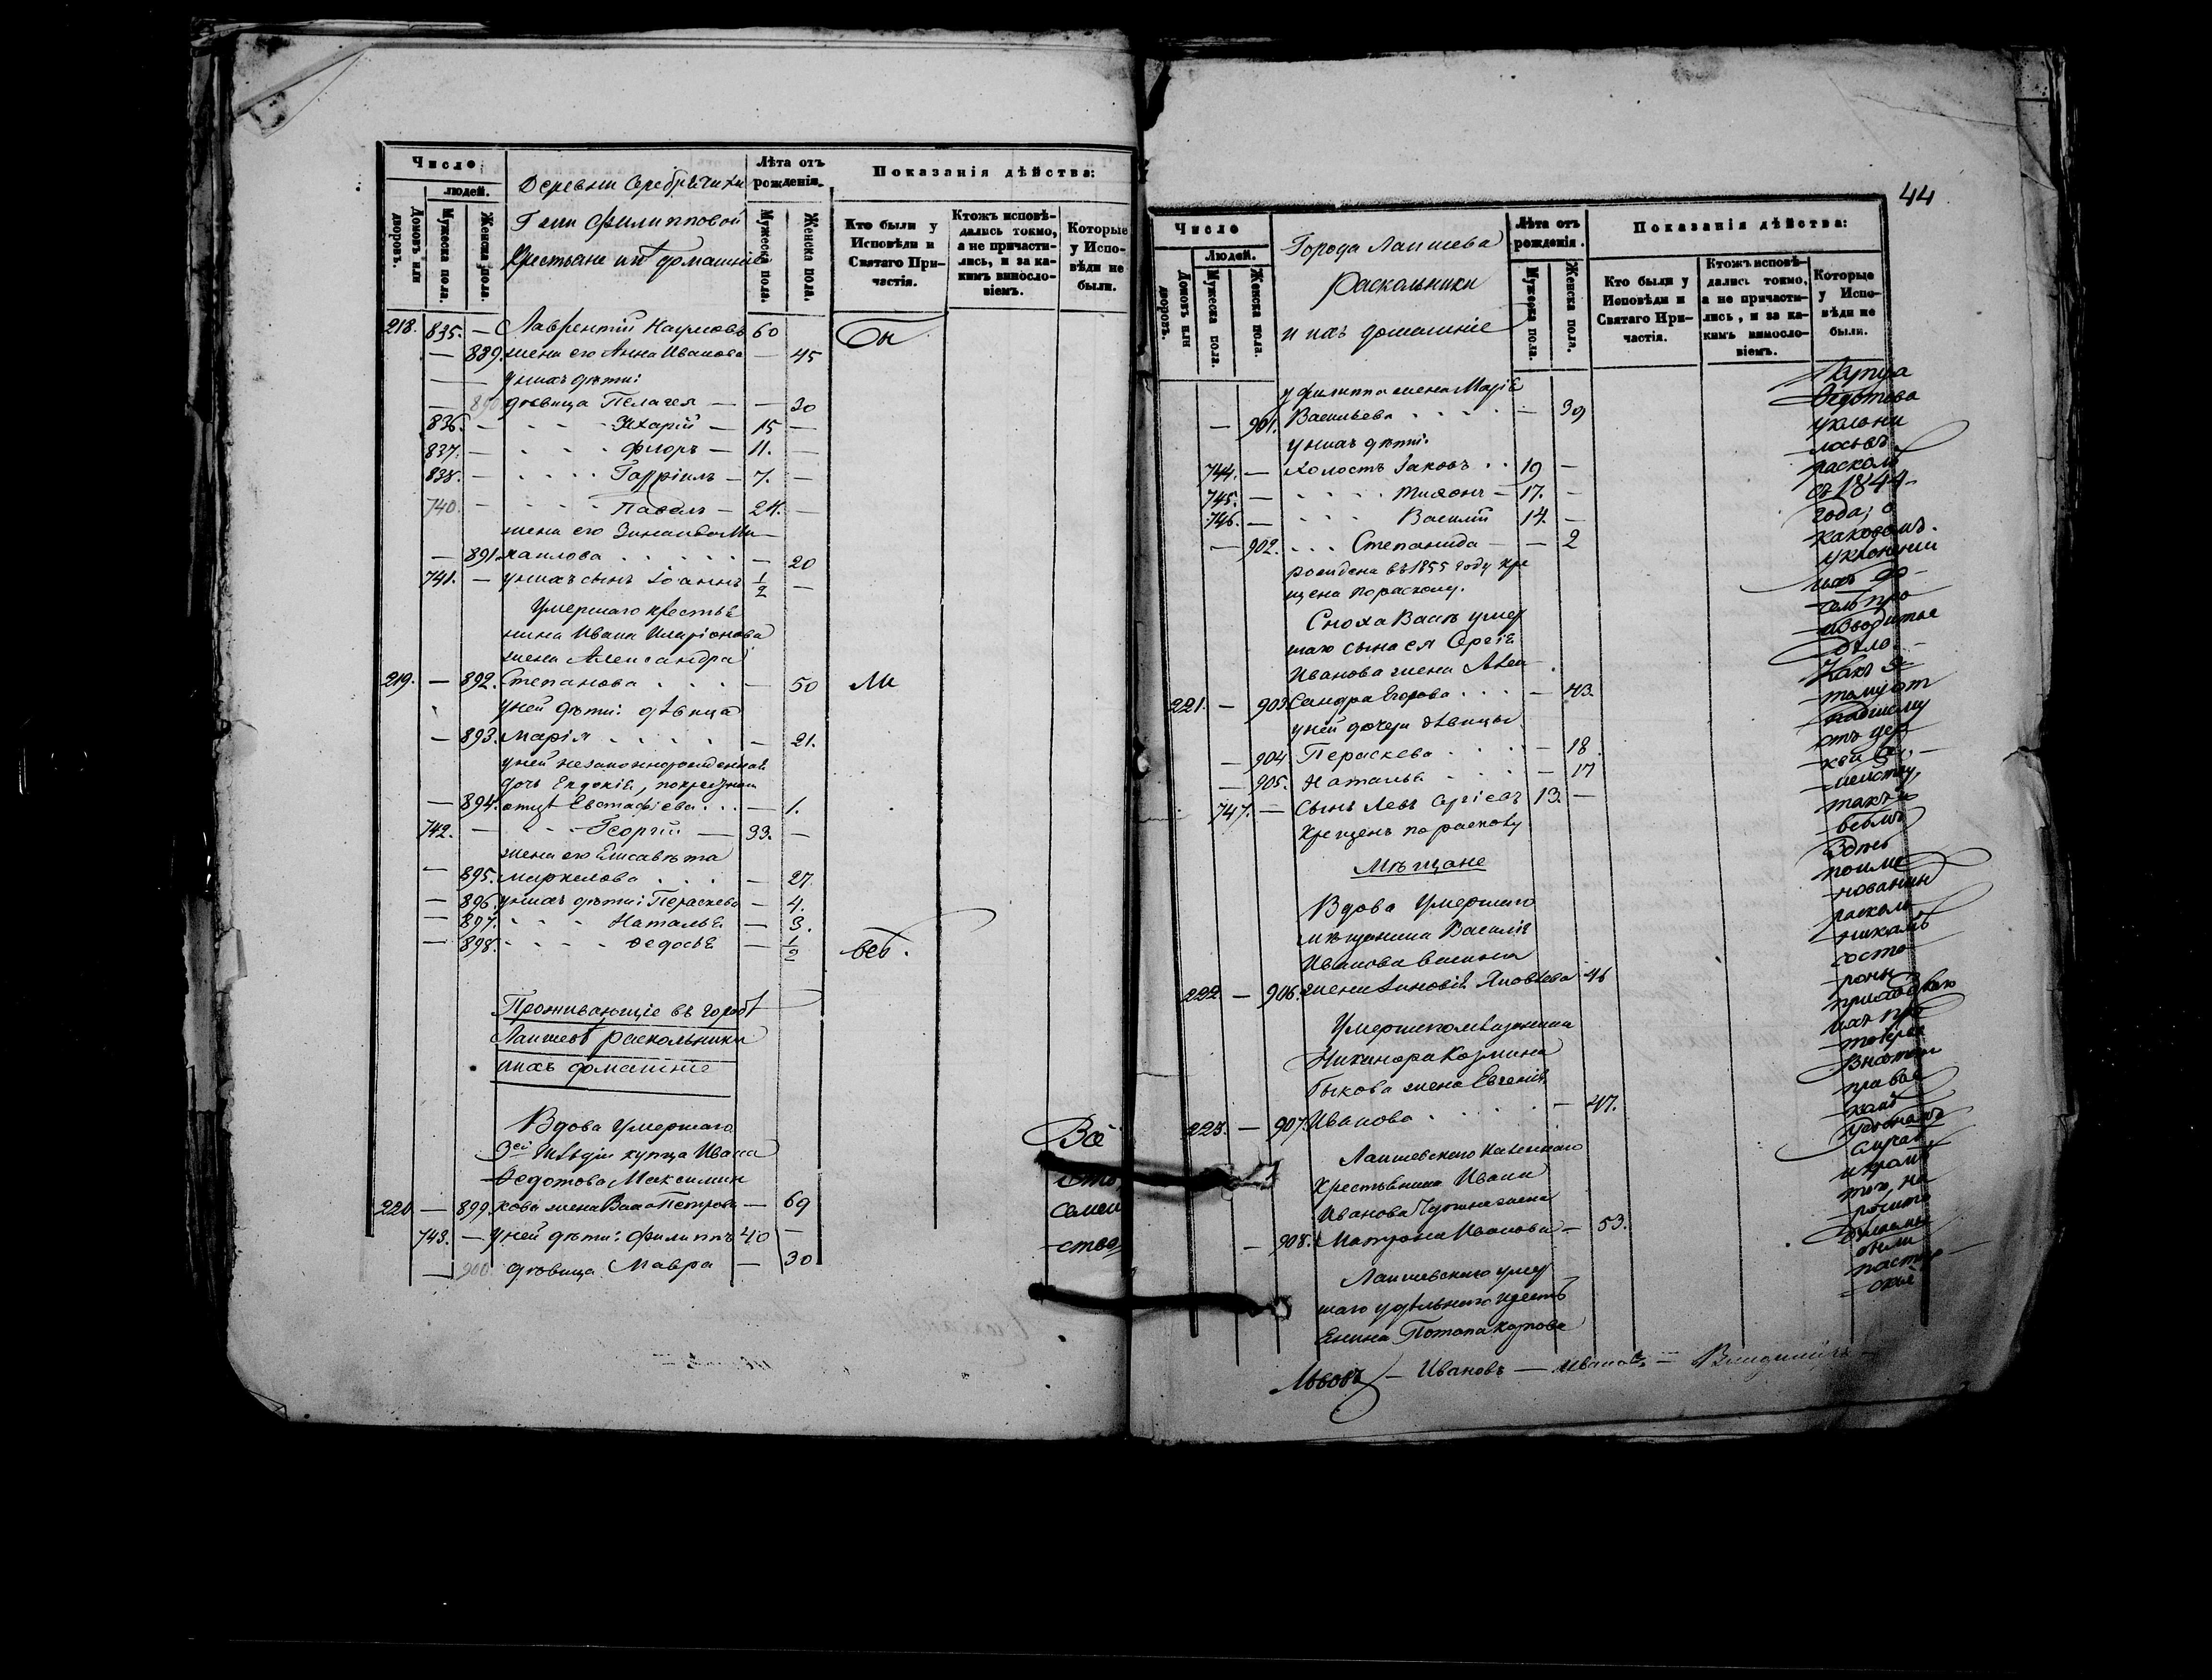 Число
людей.
Домовъ или дворовъ.
Мужеска пола.
Женска пола.
Деревни Серебрѣчихи
Г‑жи Филипповой
Крестьяне ихъ домашніе
Лѣта отъ рожденія.
Мужеска пола.
Женска пола.
Показанія дѣйства:
Кто были у Исповѣди и Святаго Причастія.
Ктожъ исповѣдались токмо, а не причастились, и за какимъ винословіемъ.
Которые у Исповѣди не были.
218. 835. — Лаврентій Наумовъ 60
— 889. жена его Анна Иванова — 45
— — у нихъ дѣти:
— 890 дѣвица Пелагея — — 30
836. — Захарій — 15 —
837. — Флоръ — 11. —
838. — Гавріилъ — 7. —
740. — Павелъ — 24. —
жена его Зинаида Ми
— 891. хаилова — 20
741. — у нихъ сынъ Іоаннъ 1/2 —
Умершаго крестья
нина Ивана Иларіонова
жена Александра
219. — 892. Степанова — 50
у ней дѣти: дѣвица
— 893. Марія — 21.
у ней незаконнорожденная
дочь Евдокія, по крестному
— 894. отцу Евстафіева — 1.
742. — Георгій — 33. —
жена его Елисавета
— 895. Маркелова — 27
— 896. у нихъ дѣти: Параскева — 4.
— 897. Наталья — 3.
— 898. Федосья — 1/2
всѣ.
Проживающіе въ городѣ
Лаишевѣ раскольники
ихъ домашніе
Вдова умершаго
3ей гильдіи купца Ивана
Федотова Максимин
220 — 899. кова жена Васса Петрова — 69
743. — У ней дѣти: Филиппъ 40 —
— 900. дѣвица Мавра — 30
Всё
это
семей
ство
44
Число
Людей.
Домовъ или дворовъ.
Мужеска пола.
Женска пола.
Города Лаишева
Раскольники
и ихъ домашніе
Лѣта отъ рожденія.
Мужеска пола.
Женска пола.
Показанія дѣйства:
Кто были у Исповѣди и Святаго Причастія.
Ктожъ исповѣдались токмо, а не причастились, и за какимъ винословіемъ.
Которые у Исповѣди не были.
у Филиппа жена Марія
— 901. Васильева — 39
у нихъ дѣти:
744. — холостъ Іаковъ 19 —
745. — Тихонъ — 17. —
746. — Василій 14. —
— 902. Степанида — — 2
рождена въ 1855 году кре
щена по расколу.
Сноха Вассъ умер
шаго сына ея Сергія
Иванова жена Алек
221. — 903 сандра Егорова — 43.
у ней дочери дѣвицы
— 904 Параскева — 18
— 905. Наталья — 17
747. — Сынъ Левъ Сергіевъ 13. —
крещенъ по расколу
Мѣщане
Вдова умершаго
мѣщанина Василія
Иванова
222 — 906. жена Зиновія Яковлева 46
Умершаго мѣщанина
Никанора Козмина
Быкова жена Евгенія
223. — 907. Иванова — 47.
Лаишевскаго казеннаго
крестьянина Ивана
Иванова жена
— 908. Матрона Иванова — 53.
Лаишевскаго умер
шаго удѣльнаго кресть
янина Потапа Карпова
Купца
Федотова
уклони
лось въ
расколъ
съ 1844
года; о
каковомъ
уклоненіи
ихъ
дѣло.
Какъ се
му от
падшему
отъ цер
кви се
мейству,
такъ и
всѣмъ
здѣсь
поиме
нованнымъ
расколь
никамъ
со сто
роны
Львовъ — Ивановъ — Иванов — Владиміръ